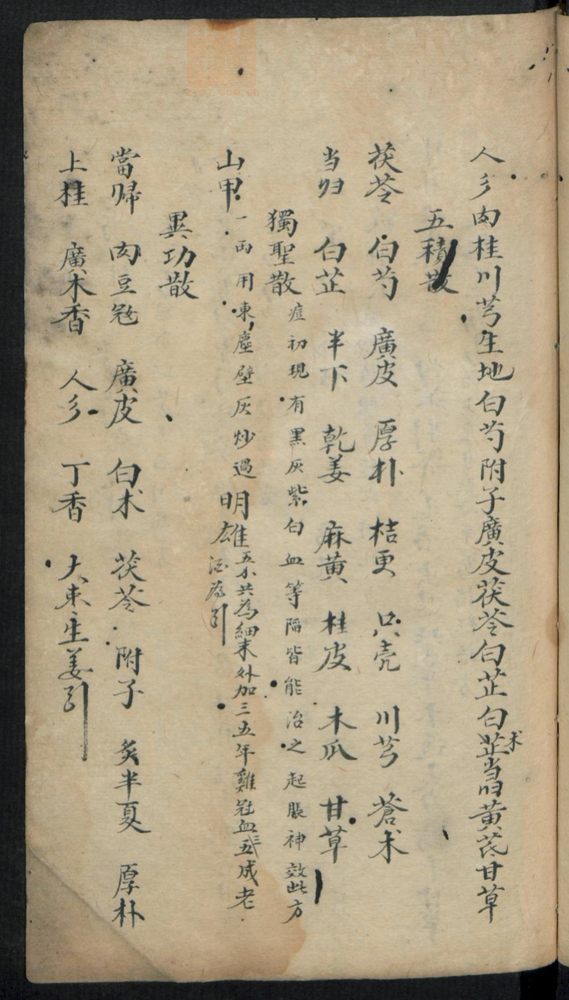 人参肉桂川芎生地白芍附子廣皮茯苓白芷白术当归黄芪甘草
五積散
茯苓 白芍 廣皮 厚朴 桔更 只壳 川芎 蒼术
当归 白芷 半下 乾姜 麻黄 桂皮 木瓜 甘草
獨聖散 痘初現有黑灰紫白血等陷皆能治之起脹神效此方
山甲一両用東壁灰炒過 明雄五卜共為細末外加三五年雞冠血 成老酒為引
異功散
當歸 肉豆冠 廣皮 白术 茯苓 附子 炙半夏 厚朴
上桂 廣木香 人参 丁香 大束生姜引